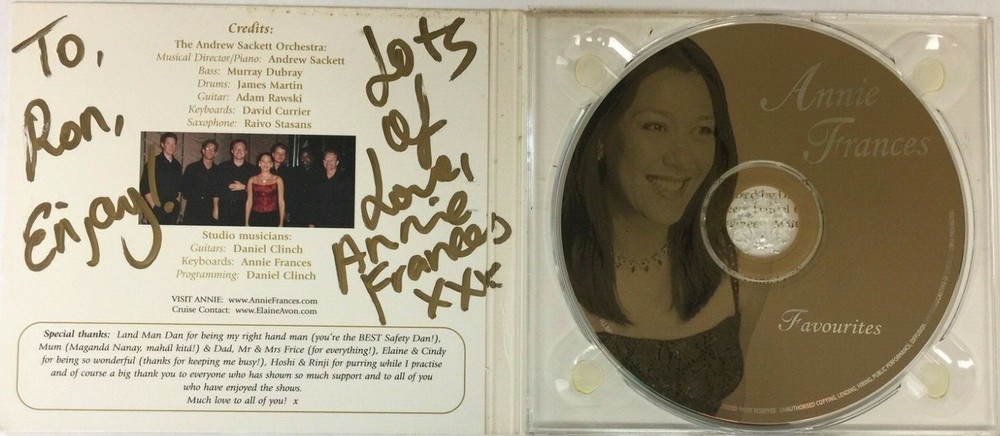 To,
Ron,
Enjoy!
Lots
of
Love,
Annie
Frances
xxx
Credits:
The Andrew Sackett Orchestra:
Musical Director/Piano: Andrew Sackett
Bass: Murray Dubray
Drums: James Martin
Guitar: Adam Rawski
Keyboards: David Currier
Saxophone: Raivo Stasans
Studio musicians:
Guitars: Daniel Clinch
Keyboards: Annie Frances
Programming: Daniel Clinch
VISIT ANNIE: www.AnnieFrances.com
Cruise Contact: www.ElaineAvon.com
Special thanks: Land Man Dan for being my right hand man (you're the BEST Safety Dan!),
Mum (Magandá Nanay, mahál kitá!) & Dad, Mr & Mrs Frice (for everything!), Elaine & Cindy
for being so wonderful (thanks for keeping me busy!), Hoshi & Rinji for purring while I practise
and of course a big thank you to everyone who has shown so much support and to all of you
who have enjoyed the shows.
Much love to all of you! x
Annie
Frances
Favourites
UNAUTHORISED COPYING, LENDING, HIRING, PUBLIC PERFORMANCE,